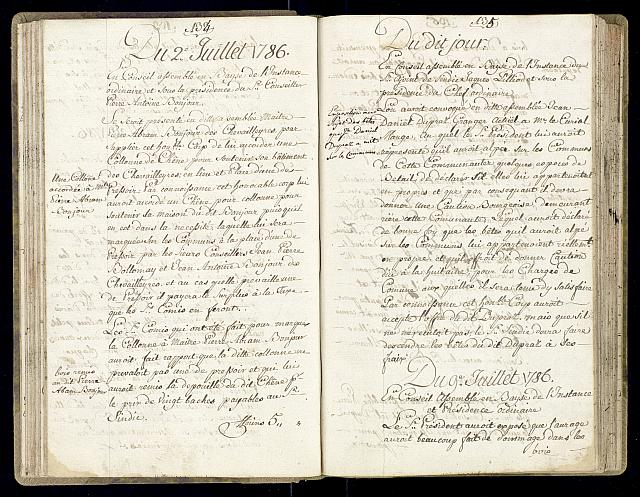 134.
Du 2e Juillet 1786.
En Conseil assemblé en Bause de l'Instance
ordinaire et Sous la présidence du Sr. Conseiller
Pierre Antoine Bonjour.
Se Seroit présenté en dite assemblée Maitre
Pierre Abram Bonjour des Chevalleyres, pour
Supplier cet honble. Corp de lui accorder une
Collonne de Chêne pour Soutenir Son bâtiment
des Chevalleyres, en lieu et Place d'une de
Pressoir. Par connoissance cet honorable corp lui
auroit accordé un Chêne pour collonne pour
Soutenir la maison du dit Bonjour puisqu'il
en est dans la necessité, laquelle lui Sera
marquée Sur les Communs à la place d'une de
Pressoir par les Sieurs Conseillers Jean Pierre
Dollonnay et Jean Antoine Bonjour des
Chevalleyres, et au cas quelle prevaille une
de Pressoir il payera le Surplus à la Taxe
que les Srs. Comis en feront.
Les Srs. Comis qui ont été fait pour marquer
la Collonne à Maitre Pierre Abram Bonjour
auroit fait rapport que la ditte collonne ne
prevaloit pas une de pressoir et que lui
auroit remis la depouille du dit Chêne pr. le
prix de Vingt baches payables au Sr.
Sindic.
Une Collonne
accordée à mtre
Pierre Abram
Bonjour
bois remis
au dit Pierre
Abram Bonjour
135.
Du dit jour.
En Conseil assemblé en Bause de l'Instance du
Sr. Ajoint de Sindic Jaques et Sous la
présidence du Chef ordinaire
L'on auroit convoqué en ditte assemblée Jean
Daniel Duprat Granger Actuel a Mr. le
Mange, au quel le Sr. President lui auroit
representé qu'il auroit alpé Sur les Communs
de Cette Communauter quelques espece de
Betail, du declarer Si elles lui appartenoient
en propres et que par consequent il devra
donner Une Caution Bourgeoise, demeurant
riere cette Communauté, Lequel auroit déclaré
de bonne foy que les bêtes qu'il auroit alpé
Sur les Communs lui appartenoient réellement
en propre, et qu'il offroit de donner Caution
dès à la huitaine, pour les Charges de
Comune aux quelles il Sera tenu dy Satisfaire
Par connoissance cet honble. Corp auroit
accepté l'offre du dit Duprat, mais que S'il
ne n'executoit pas, le Sr. Sindic devra faire
descendre les bêtes du dit Duprat à Ses
fraix.
bêtes
que Daniel
Duprat a mit
Sur le Commun
Du 9e. Juillet 1786.
En Conseil Assemblé en Bause de l'Instance
et Présidence ordinaire
Le Sr. President auroit exposé que l'aurage
auroit beaucoup fait de dommage dans les
bois